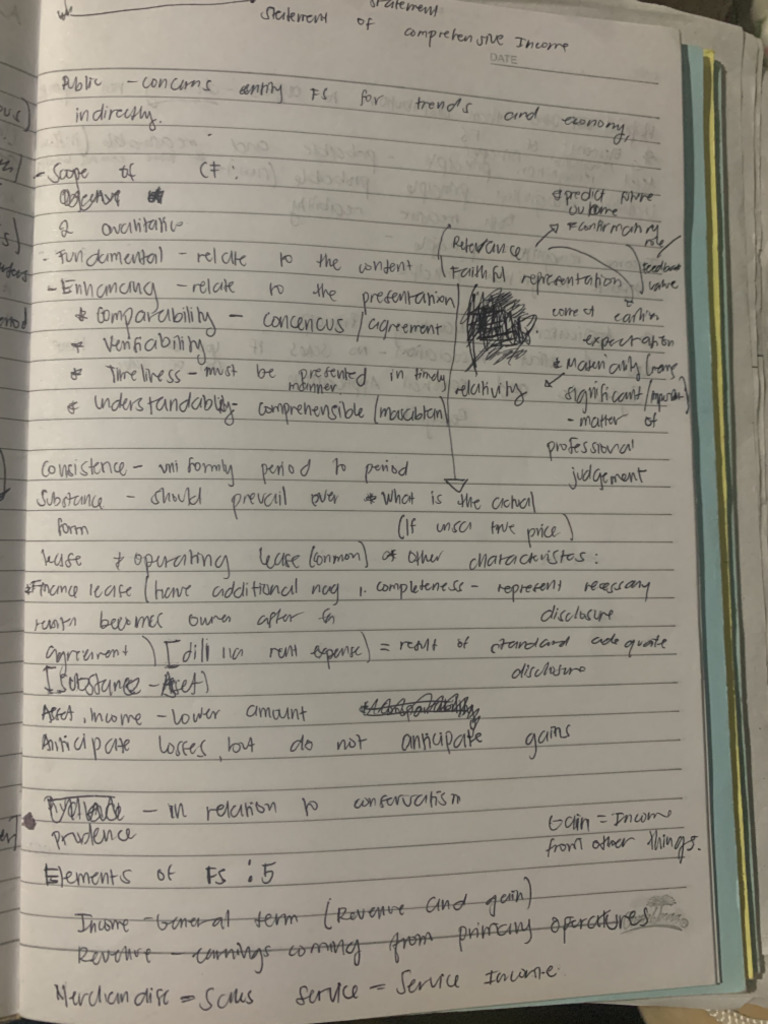 statement
Statement of comprehensive Income
DATE
Public - concerns entity FS for trends and economy,
indirectly.
- Scope of CF :
Objective
2 Qualitative
- Fundamental - relate to the content
- Enhancing - relate to the presentation
* comparability - concencus / agreement
* Verifiability
* Timeliness - must be presented in timely
manner.
* Understandability - comprehensible
Relevance
Faithful representation
* predict future
outcome
* confirmatory
role
feedback
value
correct earlier
expectation
* Materiality
relativity
significant
- matter of
professional
judgement
Consistence - uniformly period to period
Substance - should prevail over
form
* What is the actual
(If unsa true price)
lease * operating lease (common)
* Other characteristics :
* Finance lease (have additional nag
becomes owner after sa
agreement) [dili na rent expense]
[Substance - Asset]
1. completeness - represent necessary
disclosure
= result of standard adequate
disclosure
Asset, Income - Lower amount
Anticipate losses, but do not anticipate gains
- in relation to conservatism
prudence
Gain = Income
from other things.
Elements of FS : 5
Income - General term (Revenue and gain)
Revenue - earnings coming from primary operatures
Merchandise = Sales Service = Service Income